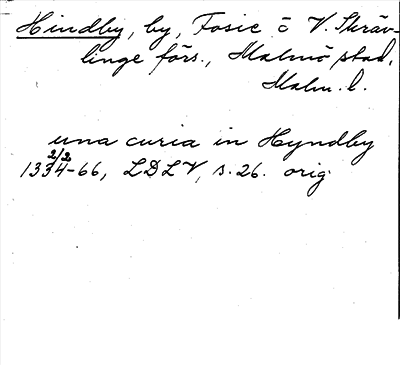 Hindby, by, Fosie o V. Skräv-
linge förs., Malmö stad,
Malm. l.
una curia in Hyndby
2/2
1334-66, LDLV, s. 26. orig.